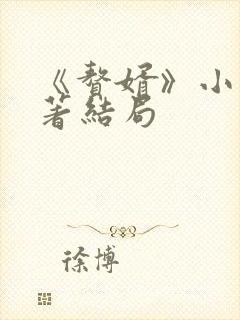 《贅婿》小
著結局
徐博